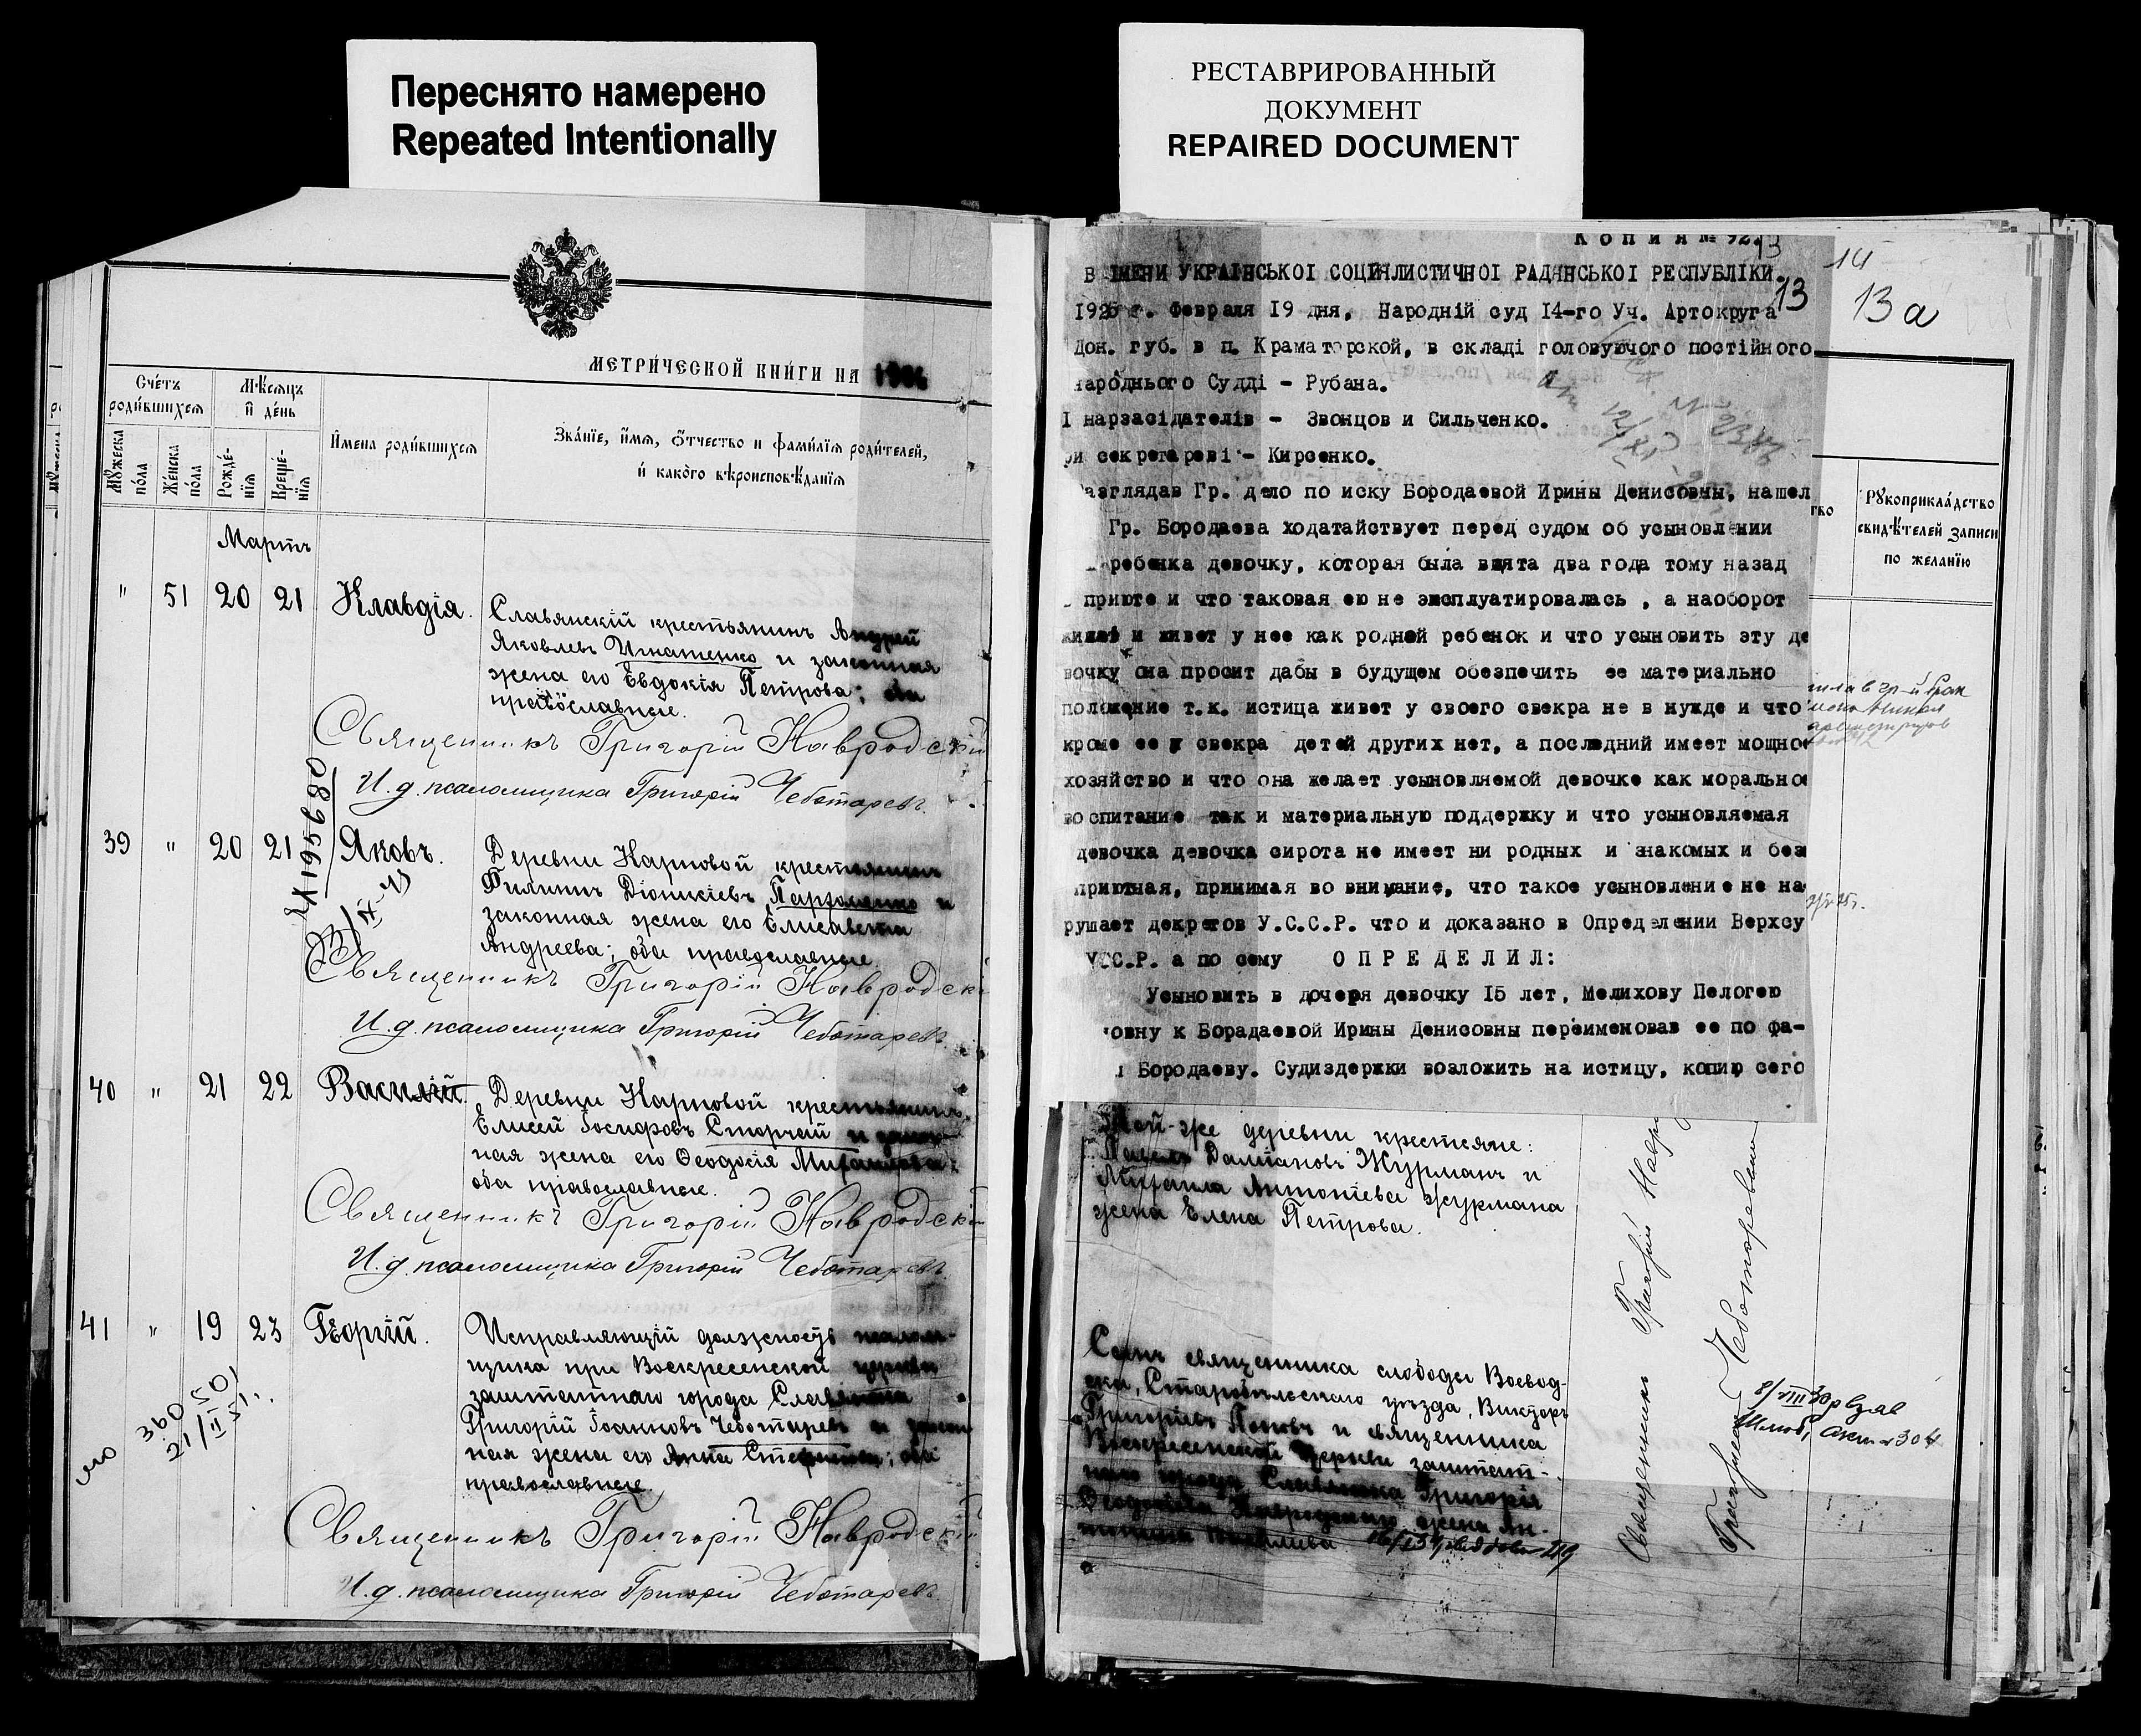 Переснято намерено
Repeated Intentionally
РЕСТАВРИРОВАННЫЙ
ДОКУМЕНТ
REPAIRED DOCUMENT
МЕТРИ́ЧЕСКОЙ КНИ́ГИ НА
Сче́тъ роди́вшихсѧ
Мѣ́сѧцъ и҆ де́нь
Мꙋ́жеска по́ла
Же́нска по́ла
Рожде́нїѧ
Креще́нїѧ
И҆мена̀ роди́вшихсѧ
Зва́нїе, и҆́мѧ, ѻ҆́тчество и фами́лїѧ роди́телей,
и҆ како́гѡ вѣроисповѣ́данїѧ
Мартъ
" 51 20 21 Клавдія.
Славянскій крестьянинъ Андрей
Яковлевъ Игнатенко и законная
жена его Евдокія Петрова; оба
православные.
Священникъ Григорій Навродскій
И.д. псаломщика Григорій Чеботаревъ.
39 " 20 21 Яковъ.
Деревни Карповой крестьянинъ
Филиппъ Діонисіевъ Пархоменко и
законная жена его Елисавета
Андреева; оба православные.
Священникъ Григорій Навродскій
И.д. псаломщика Григорій Чеботаревъ.
40 " 21 22 Василій.
Деревни Карповой крестьянинъ
Елисей Іосифовъ Сторчай и закон-
ная жена его Ѳеодосія Михаилова;
оба православные.
Священникъ Григорій Навродскій
И.д. псаломщика Григорій Чеботаревъ.
41 " 19 23 Георгій.
Исправляющій должность псалом-
щика при Воскресенской церкви
заштатнаго города Славянска
Григорій Іоанновъ Чеботаревъ и закон-
ная жена его Анна Стефанова; оба
православные.
360501
21/II 51.
Священникъ Григорій Навродскій
И.д. псаломщика Григорій Чеботаревъ.
КОПИЯ № 92.
13
14
13
13 а
В ІМЕНИ УКРАІНСЬКОІ СОЦІЯЛИСТИЧНОІ РАДЯНСЬКОІ РЕСПУБЛІКИ.
1925 г. Февраля 19 дня. Народній суд 14-го Уч. Артокруга
Дон. губ. в п. Краматорской, в складі головуючого постійного
народнього Судді - Рубана.
І нарзасідателів - Звонцов и Сильченко.
ри секретареві - Кирсенко.
Разглядав Гр. дело по иску Бородаевой Ирины Денисовны, нашел
Гр. Бородаева ходатайствует перед судом об усыновлении
ребенка девочку, которая была взята два года тому назад
приюте и что таковая ею не эксплуатировалась , а наоборот
жила и живет у нее как родной ребенок и что усыновить эту де
вочку она просит дабы в будущем обезпечить ее материально
положение т.к. истица живет у своего свекра не в нужде и что
кроме ее и свекра детей других нет, а последний имеет мощное
хозяйство и что она желает усыновляемой девочке как морально
воспитание так и материальную поддержку и что усыновляемая
девочка девочка сирота не имеет ни родных и знакомых и без
приютная, принимая во внимание, что такое усыновление не на
рушает декретов У.С.С.Р. что и доказано в Определении Верхсу
УСС.Р. а по сему ОПРЕДЕЛИЛ:
Усыновить в дочеря девочку 15 лет, Мелихову Пелогею
овну к Борадаевой Ирины Денисовны переименовав ее по фа-
Бородаеву. Судиздержки возложить на истицу, копию сего
Рꙋкоприкла́дство
свидѣ́телей за́писи
по жела́нїю
Той-же деревни крестяне:
Павелъ Далмановъ Журманъ и
Михаила Антоніева Журмана
жена Елена Петрова.
Сынъ священника слободы Воевод-
ска, Старобѣльскаго уѣзда, Викторъ
Григоріевъ Поповъ и священника
Воскресенской Церкви заштат-
наго города Славянска Григорія
Ѳеодосіева Навродскаго жена Ан-
Священникъ Григорій Навродскій
Григорій Чеботаревъ
8/VIII 30р взяв
Шлюб, акт № 304